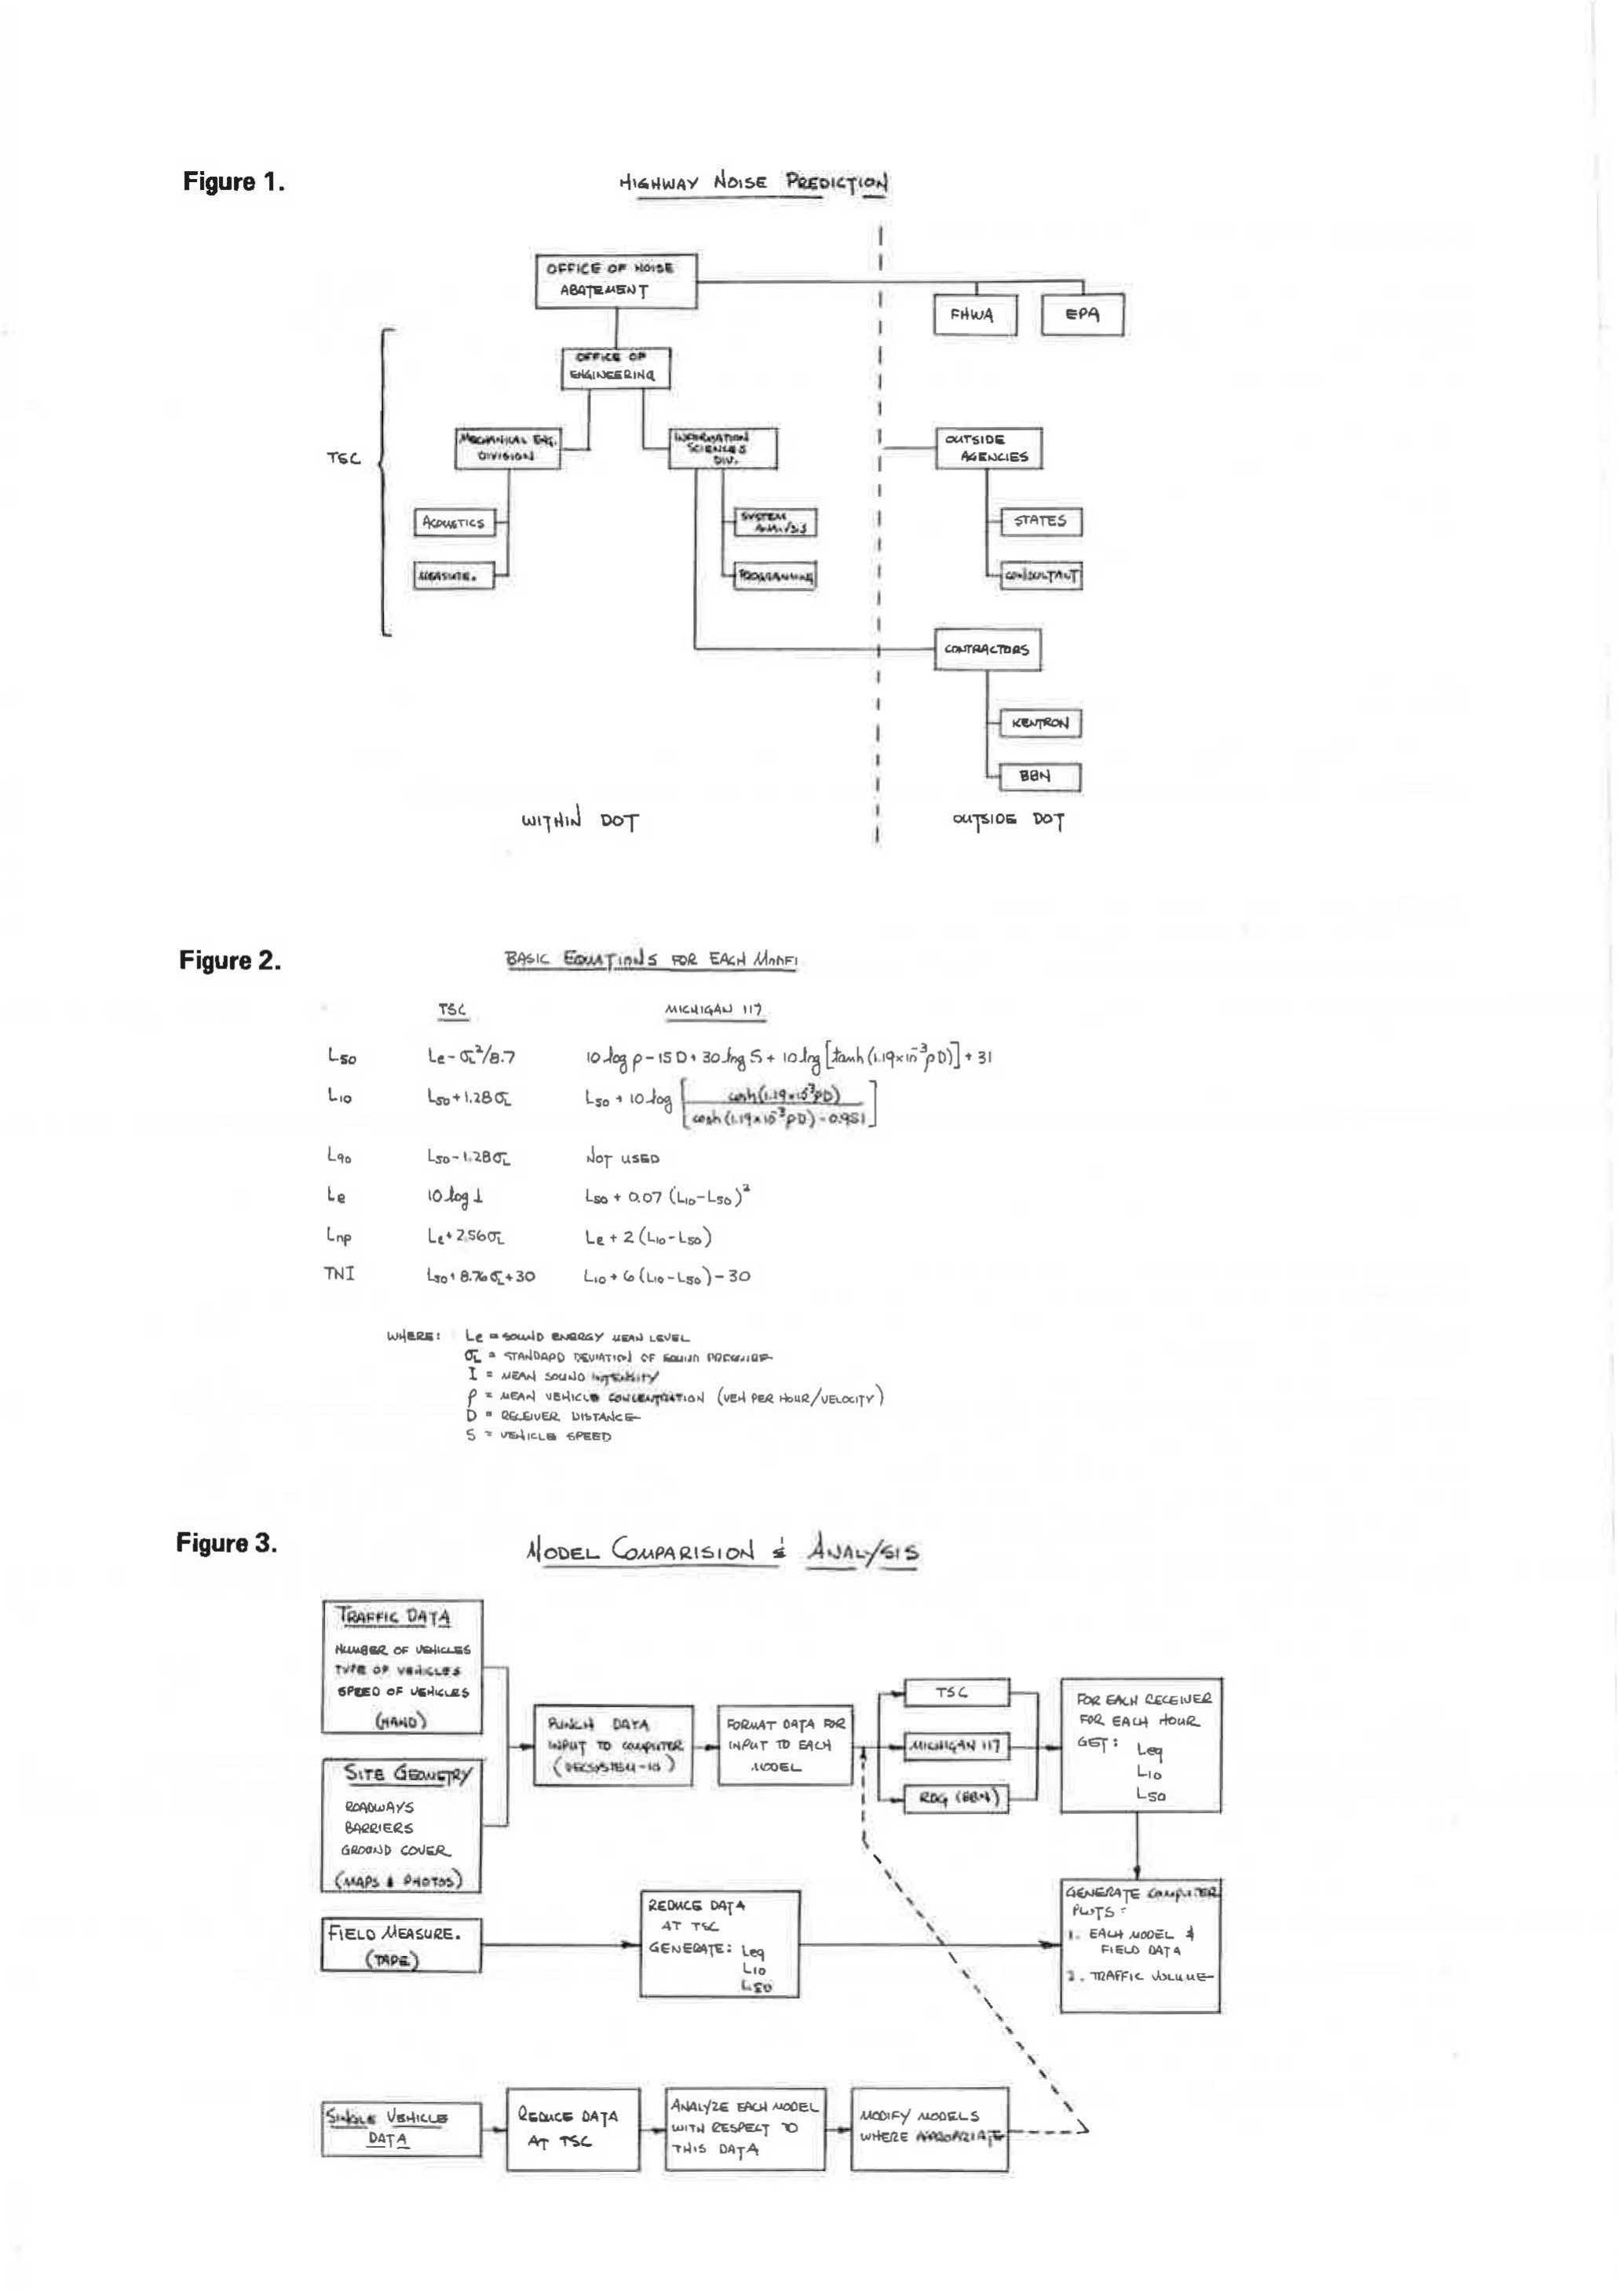 Figure 1.
HIGHWAY NOISE PREDICTION
OFFICE OF NOISE
ABATEMENT
FHWA
EPA
OFFICE OF
ENGINEERING
TSC
MECHANICAL ENG.
DIVISION
INFORMATION
SCIENCES
DIV.
OUTSIDE
AGENCIES
ACOUSTICS
SYSTEM
ANALYSIS
STATES
MEASURE.
PROGRAMMING
CONSULTANT
CONTRACTORS
KENTRON
BBN
WITHIN DOT
OUTSIDE DOT
Figure 2.
BASIC EQUATIONS FOR EACH MODEL
TSC MICHIGAN 117
L50 Le - σL²/8.7 10 log ρ - 15 D + 30 log S + 10 log [tanh (1.19×10⁻³ρD)] + 31
L10 L50 + 1.28σL L50 + 10 log [cosh (1.19×10⁻³ρD) / cosh (1.19×10⁻³ρD) - 0.951]
L90 L50 - 1.28σL NOT USED
Le 10 log I L50 + 0.07 (L10 - L50)²
Lnp Le + 2.56σL Le + 2 (L10 - L50)
TNI L50 + 8.76σL + 30 L10 + 6 (L10 - L50) - 30
WHERE: Le = SOUND ENERGY MEAN LEVEL
σL = STANDARD DEVIATION OF SOUND PRESSURE
I = MEAN SOUND INTENSITY
ρ = MEAN VEHICLE CONCENTRATION (VEH PER HOUR/VELOCITY)
D = RECEIVER DISTANCE
S = VEHICLE SPEED
Figure 3.
MODEL COMPARISION & ANALYSIS
TRAFFIC DATA
NUMBER OF VEHICLES
TYPE OF VEHICLES
SPEED OF VEHICLES
(HAND)
SITE GEOMETRY
ROADWAYS
BARRIERS
GROUND COVER
(MAPS & PHOTOS)
PUNCH DATA
INPUT TO COMPUTER
(DECSYSTEM-10)
FORMAT DATA FOR
INPUT TO EACH
MODEL
TSC
MICHIGAN 117
RDG (BBN)
FOR EACH RECEIVER
FOR EACH HOUR
GET: Leq
L10
L50
FIELD MEASURE.
(TAPE)
REDUCE DATA
AT TSC
GENERATE: Leq
L10
L50
GENERATE COMPUTER
PLOTS:
1. EACH MODEL &
FIELD DATA
2. TRAFFIC VOLUME
SINGLE VEHICLE
DATA
REDUCE DATA
AT TSC
ANALYZE EACH MODEL
WITH RESPECT TO
THIS DATA
MODIFY MODELS
WHERE